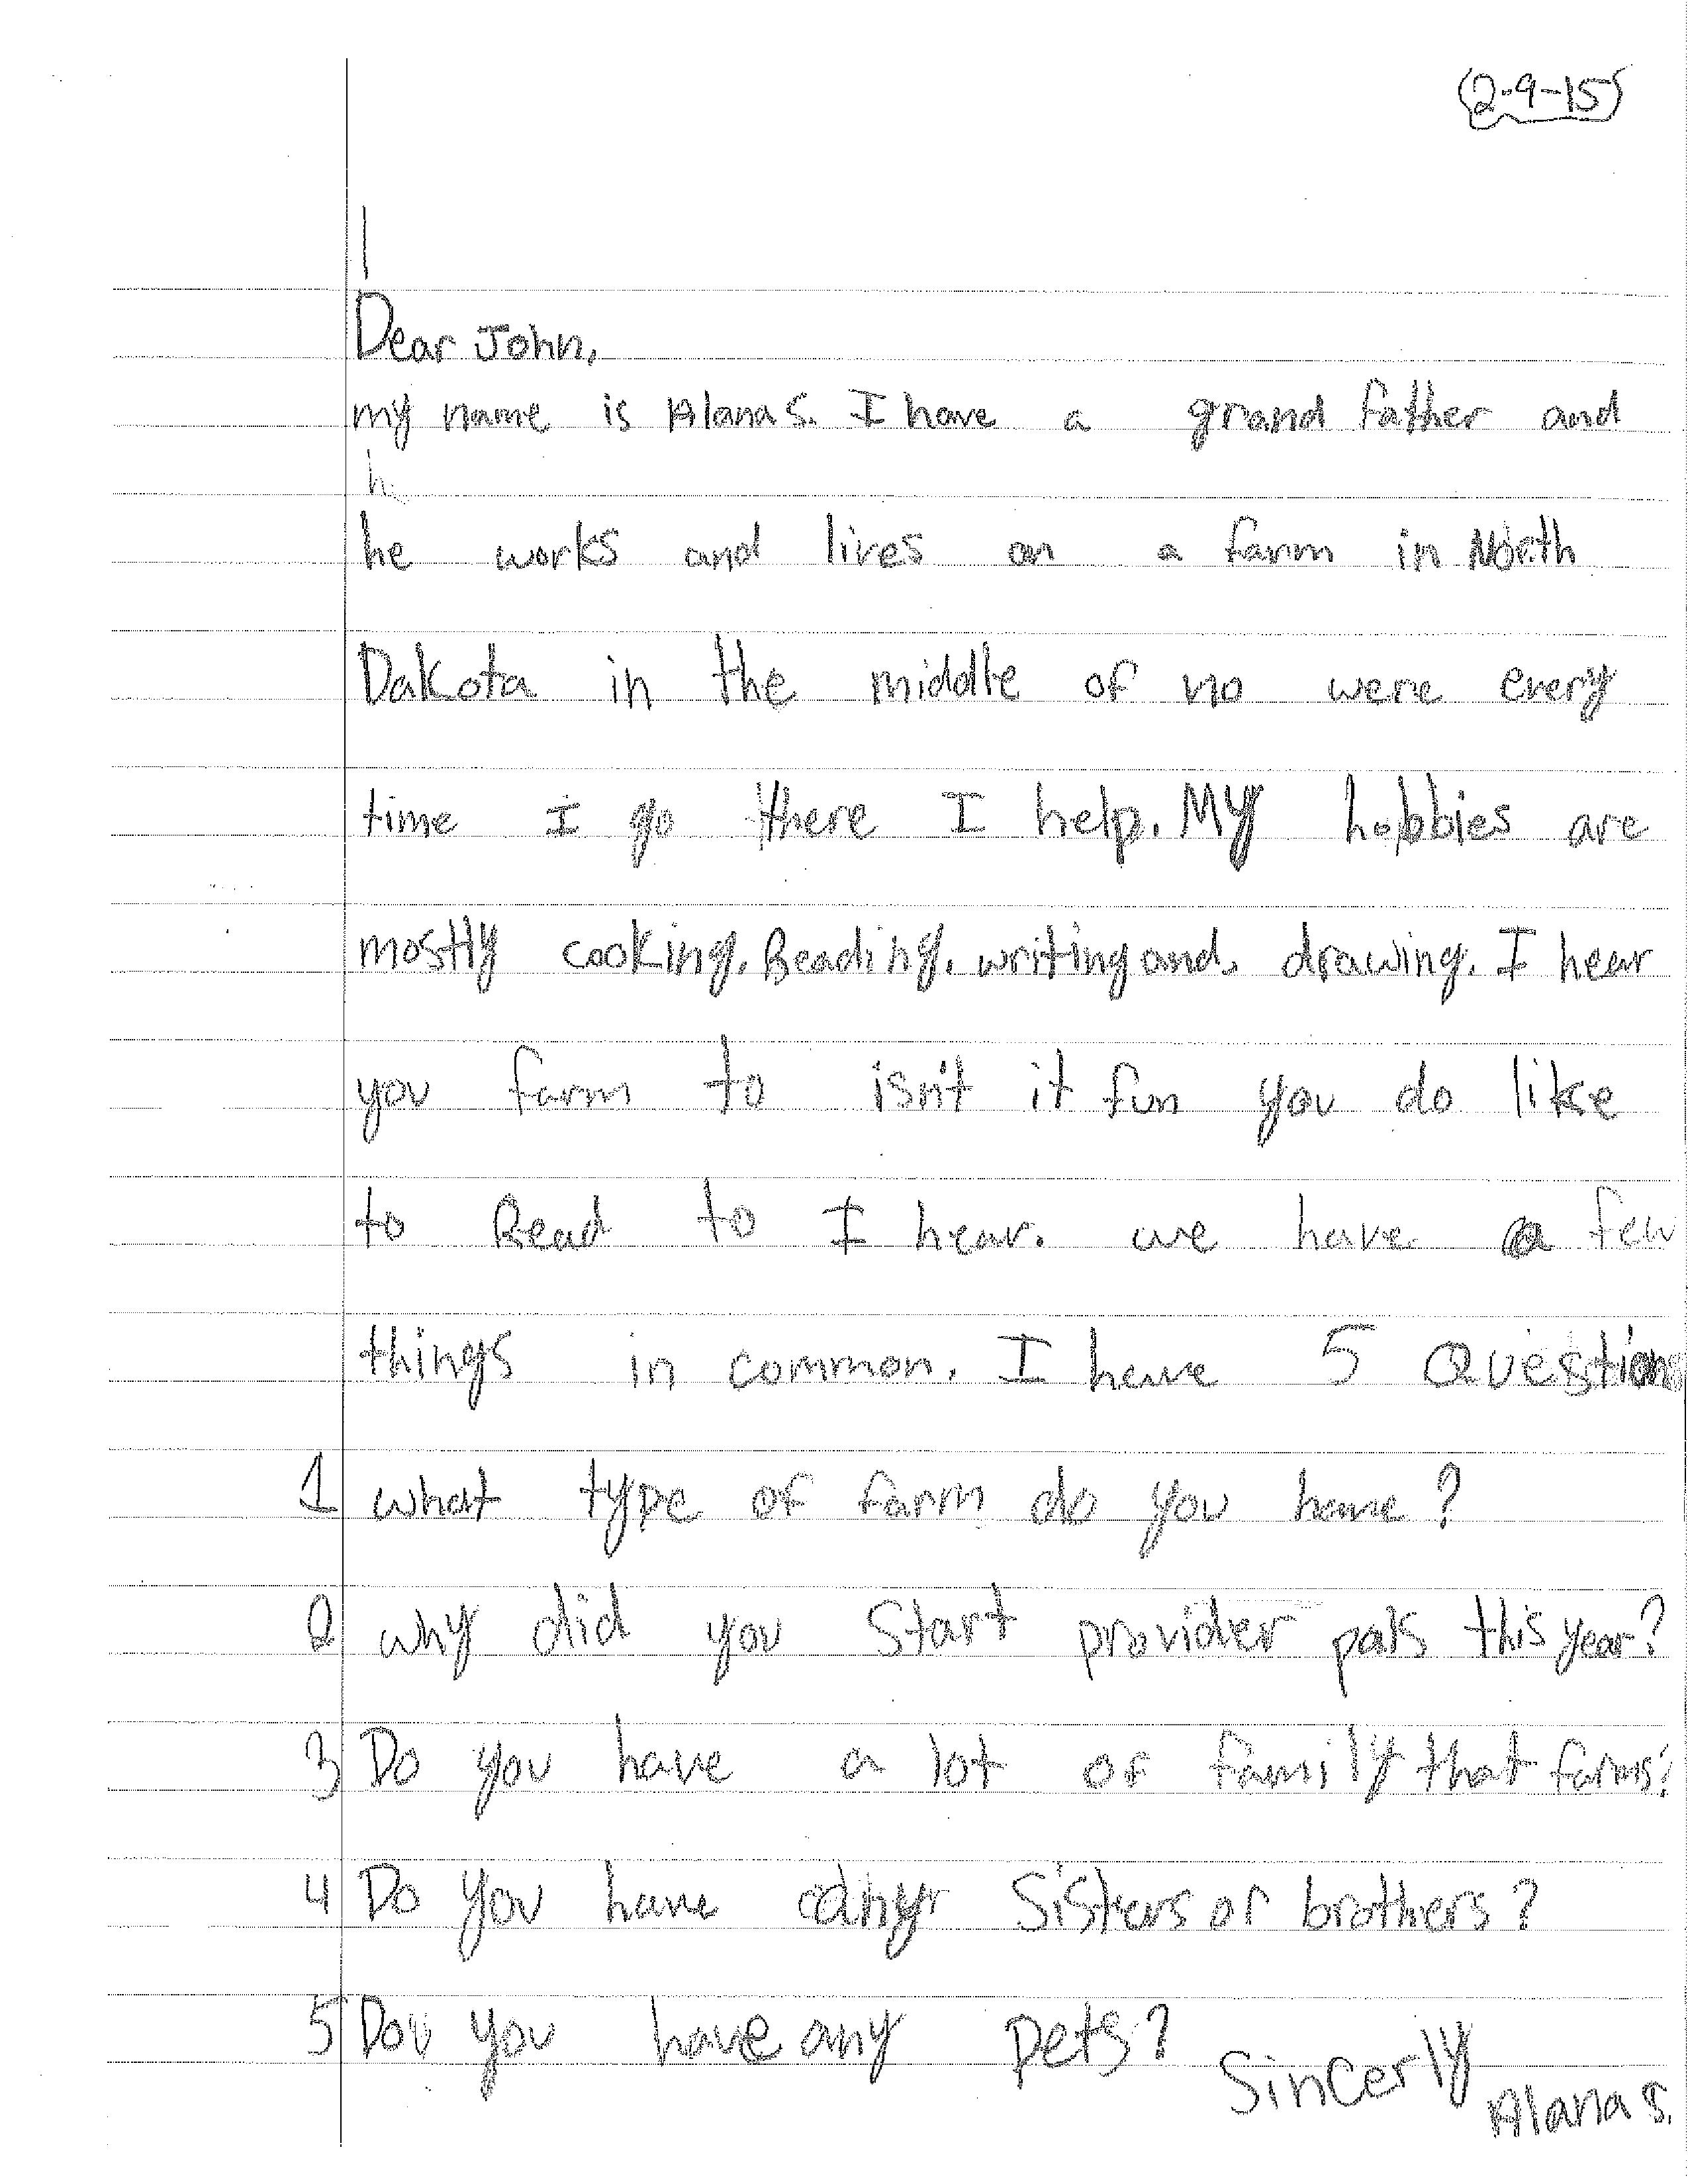 (2-9-15)
Dear John,
my name is Alana S. I have a grand father and
h
he works and lives on a farm in North
Dakota in the middle of no were every
time I go there I help. My hobbies are
mostly cooking, Reading, writing and, drawing. I hear
you farm to isn't it fun you do like
to Read to I hear. we have a few
things in common. I have 5 Questions
1 what type of farm do you have?
2 why did you Start provider pals this year?
3 Do you have a lot of family that farms?
4 Do you have any Sisters or brothers?
5 Dou you have any pets?
Sincerly
Alana S.